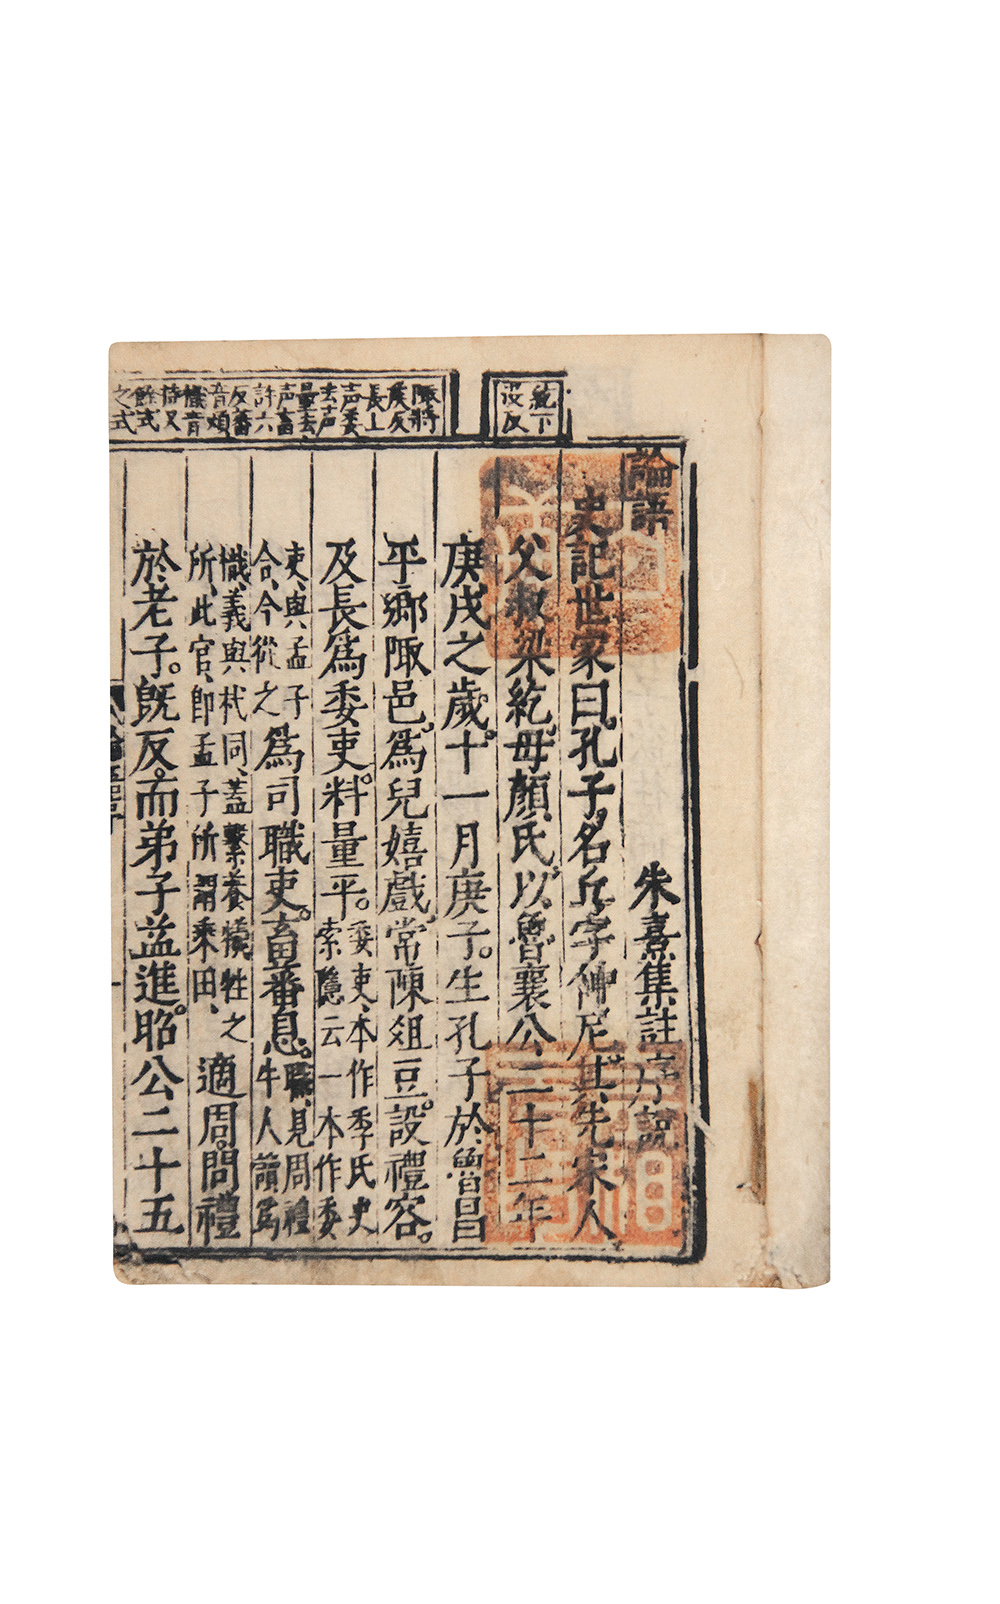 紇下
没反
陬將
侯反
長上
声委
去声
量去
声畜
許六
反蕃
音煩
樴音
特又
餘式
之式
論語
朱熹集註序說
史記世家曰。孔子名丘。字仲尼。其先宋人
父叔梁紇。母顏氏。以魯襄公二十二年
庚戌之歲。十一月庚子。生孔子於魯昌
平鄉陬邑。爲兒嬉戲。常陳俎豆。設禮容。
及長爲委吏。料量平。委吏、本作季氏史
索隱云一本作委
吏、與孟子
合、今從之爲司職吏。畜蕃息。職、見周禮
牛人讀爲
樴、義與杙同、蓋繫養犧牲之
所、此官、卽孟子所謂乘田、適周。問禮
於老子。旣反。而弟子益進。昭公二十五